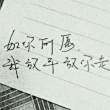 如你所愿
我效平放你走